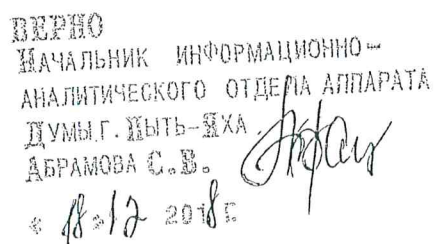 ВЕРНО
НАЧАЛЬНИК ИНФОРМАЦИОННО-
АНАЛИТИЧЕСКОГО ОТДЕЛА АППАРАТА
ДУМЫ Г. ПЫТЬ-ЯХА
АБРАМОВА С.В.
«18»12 2018 г.